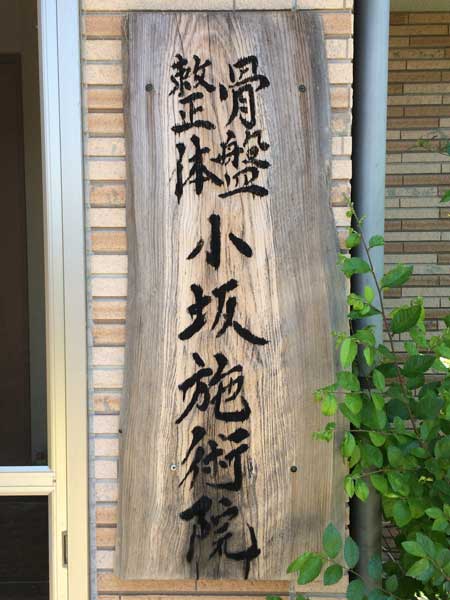 骨盤
整体
小坂施術院